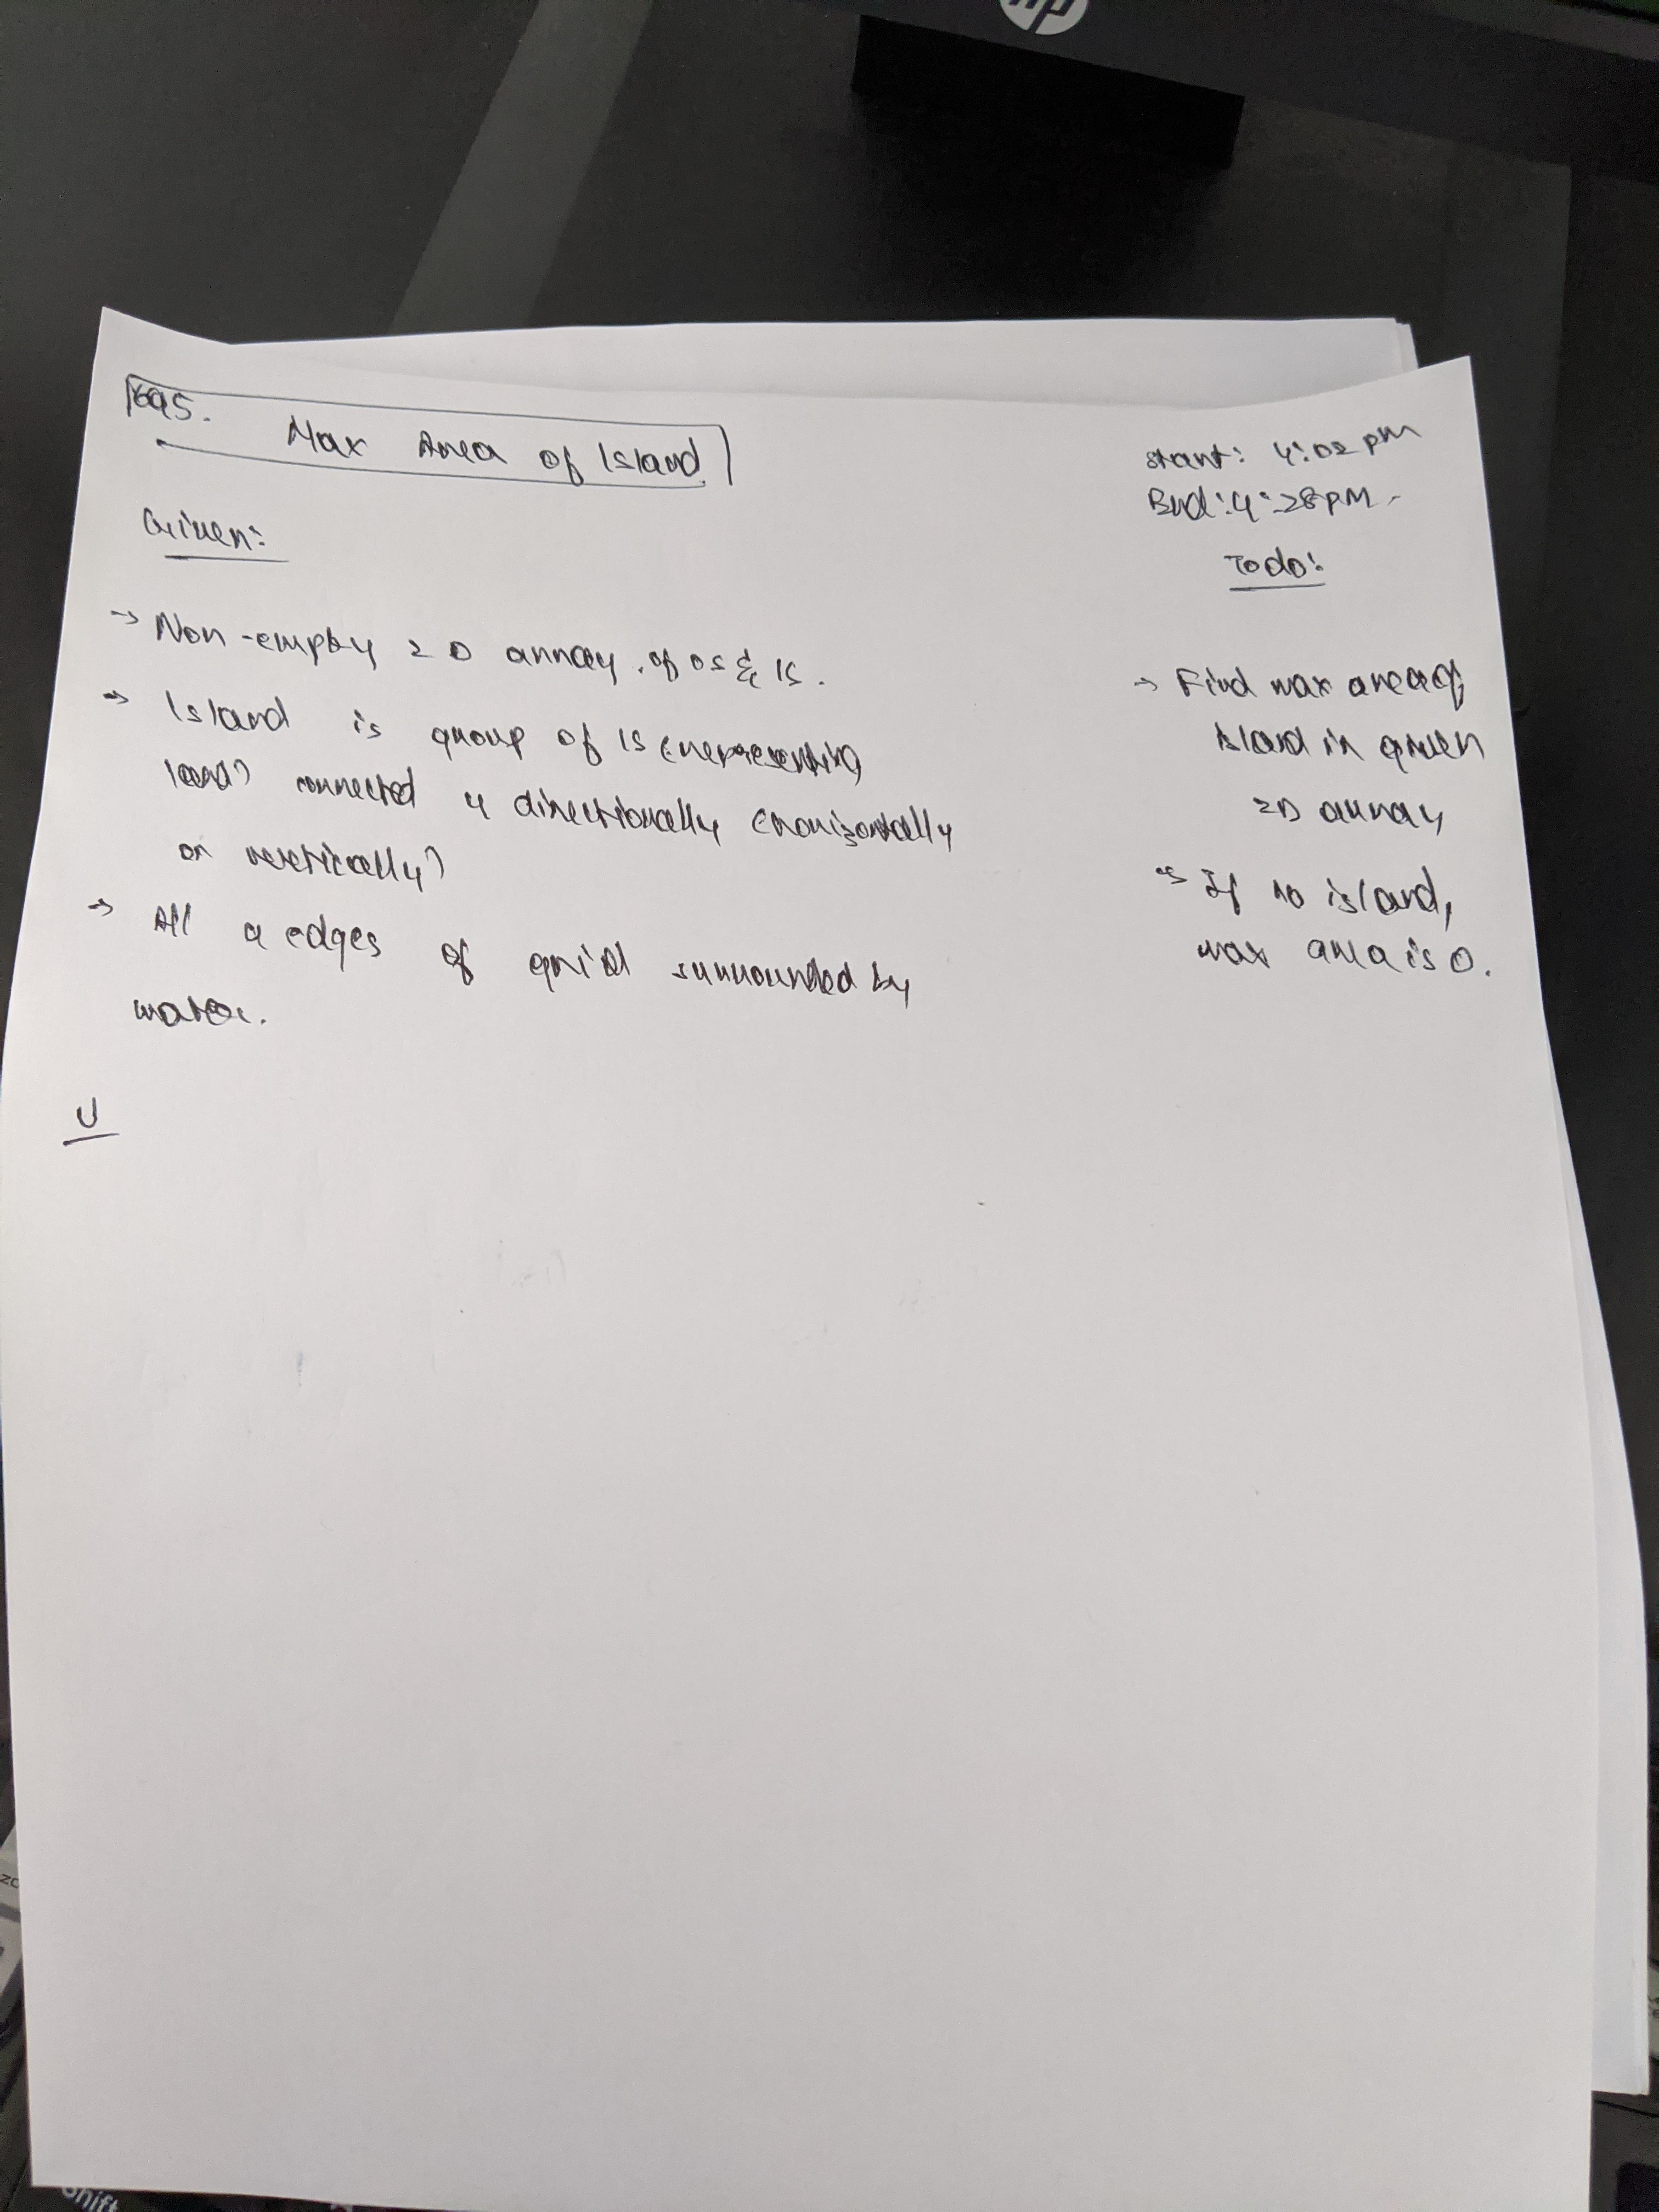 hp
695. Max Area of Island
Start: 4:02 pm
End: 4:28 pm
Given:
Todo:
→ Non-empty 2D array of 0s & 1s.
→ Island is group of 1s (representing
land) connected 4 directionally (horizontally
or vertically)
→ All 4 edges of grid surrounded by
water.
→ Find max area of
island in given
2D array
→ If no island,
max area is 0.
U
Shift